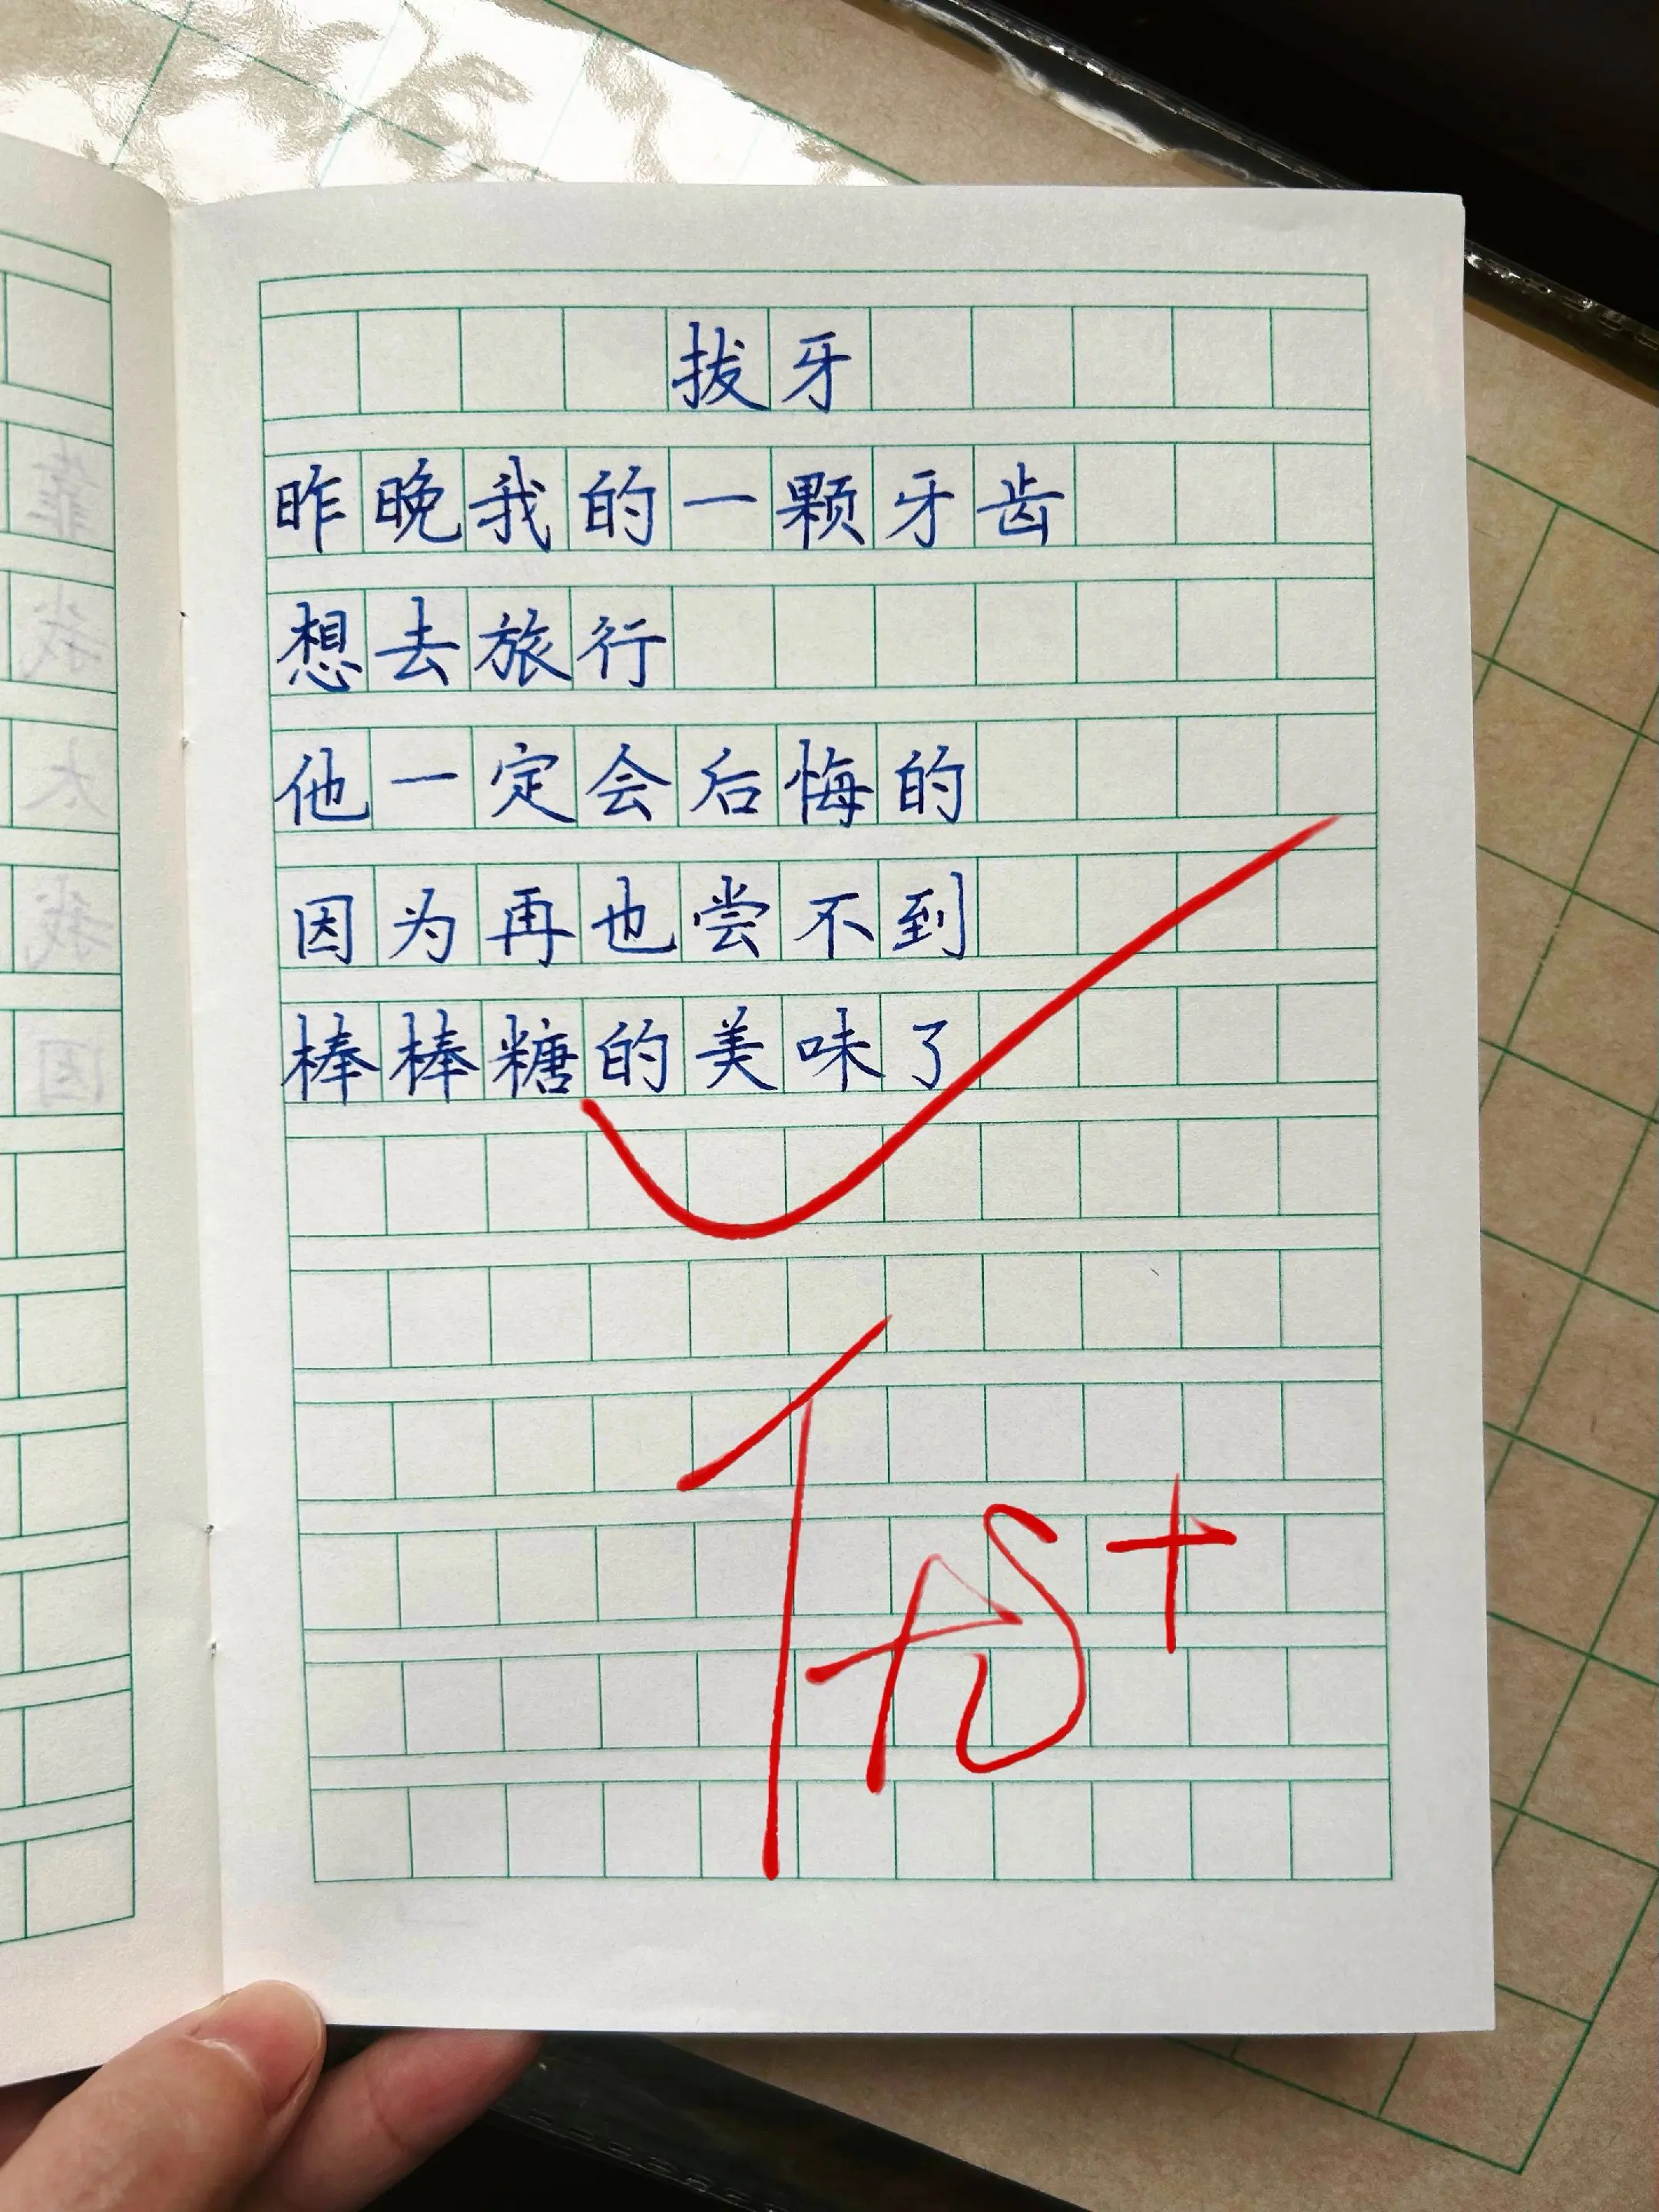 拔牙
昨晚我的一颗牙齿
想去旅行
他一定会后悔的
因为再也尝不到
棒棒糖的美味了